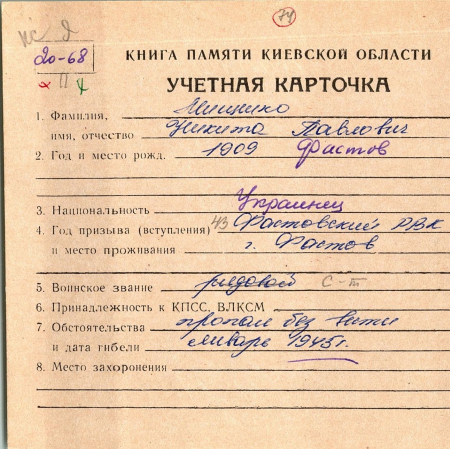 74
20-68
П
КНИГА ПАМЯТИ КИЕВСКОЙ ОБЛАСТИ
УЧЕТНАЯ КАРТОЧКА
1. Фамилия,
имя, отчество Никита Павлович
2. Год и место рожд. 1909 Фастов
3. Национальность Украинец
4. Год призыва (вступления) 43 Фастовский РВК
и место проживания г. Фастов
5. Воинское звание рядовой с-т
6. Принадлежность к КПСС, ВЛКСМ
7. Обстоятельства пропал без вести
и дата гибели январь 1945г.
8. Место захоронения